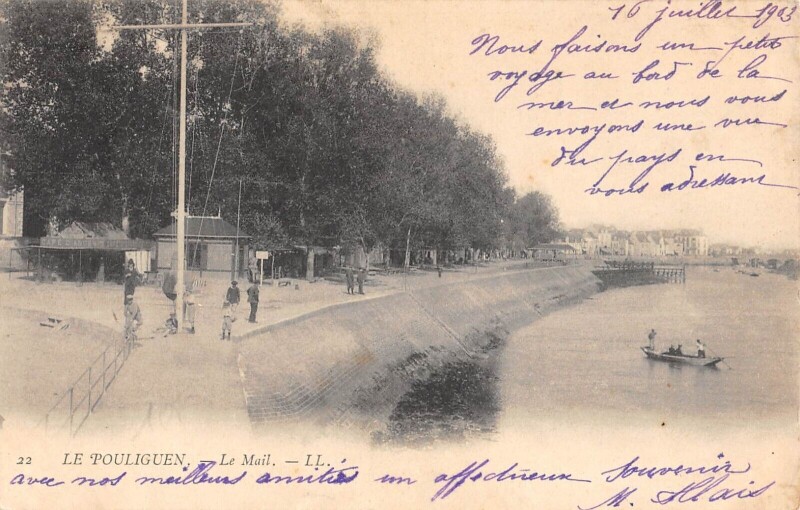 16 juillet 1903
Nous faisons un petit
voyage au bord de la
mer et nous vous
envoyons une vue
du pays en
vous adressant
22 LE POULIGUEN. — Le Mail. — LL.
avec nos meilleurs amitiés un affectueux souvenir
M. Allais